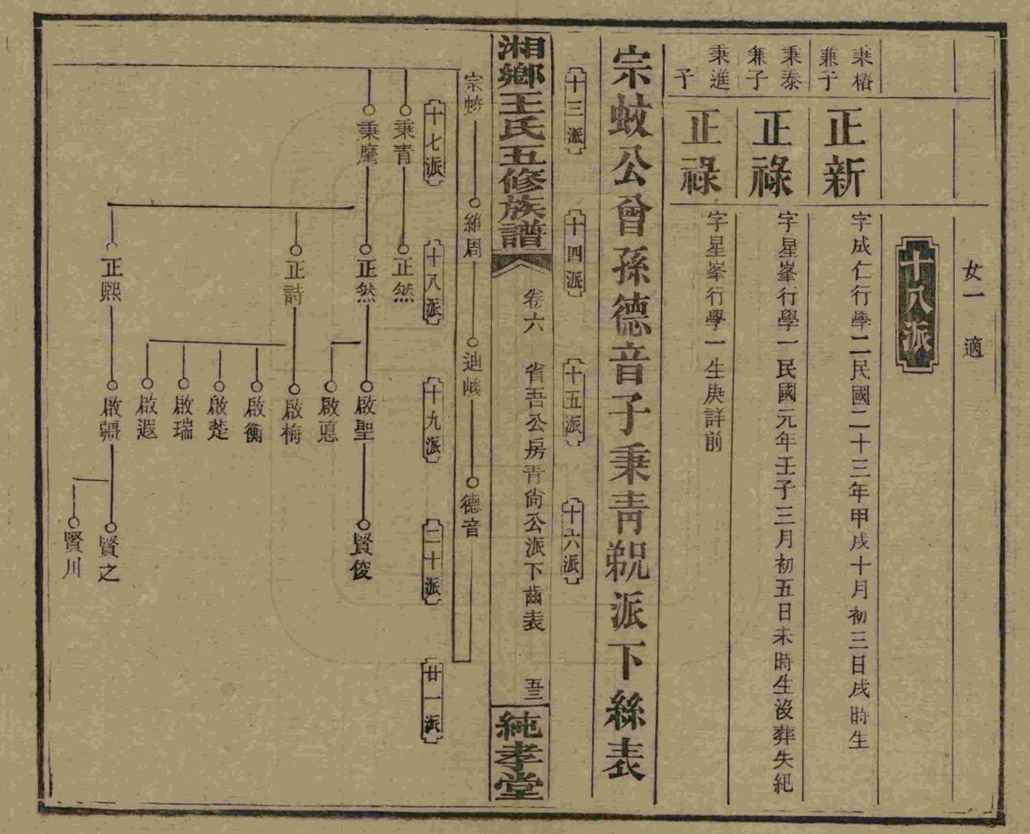 女一 適
十八派
秉楷
兼子
正新
字成仁行學二民國二十三年甲戌十月初三日戌時生
秉泰
兼子
正祿
字星峯行學一民國元年壬子三月初五日未時生沒葬失紀
秉進
子
正祿
字星峯行學一生庚詳前
宗蛟公曾孫德音子秉靑 派下絲表
十三派
十四派
十五派
十六派
湘鄉王氏五修族譜
卷六 省吾公房青尙公派下齒表 五三
純孝堂
宗蛟
維周
迪嶼
德音
十七派
十八派
十九派
二十派
廿一派
秉青
正然
秉麾
正然
啟聖
賢俊
啟憙
正詩
啟梅
啟衡
啟楚
啟瑞
啟遐
正熙
啟疆
賢之
賢川